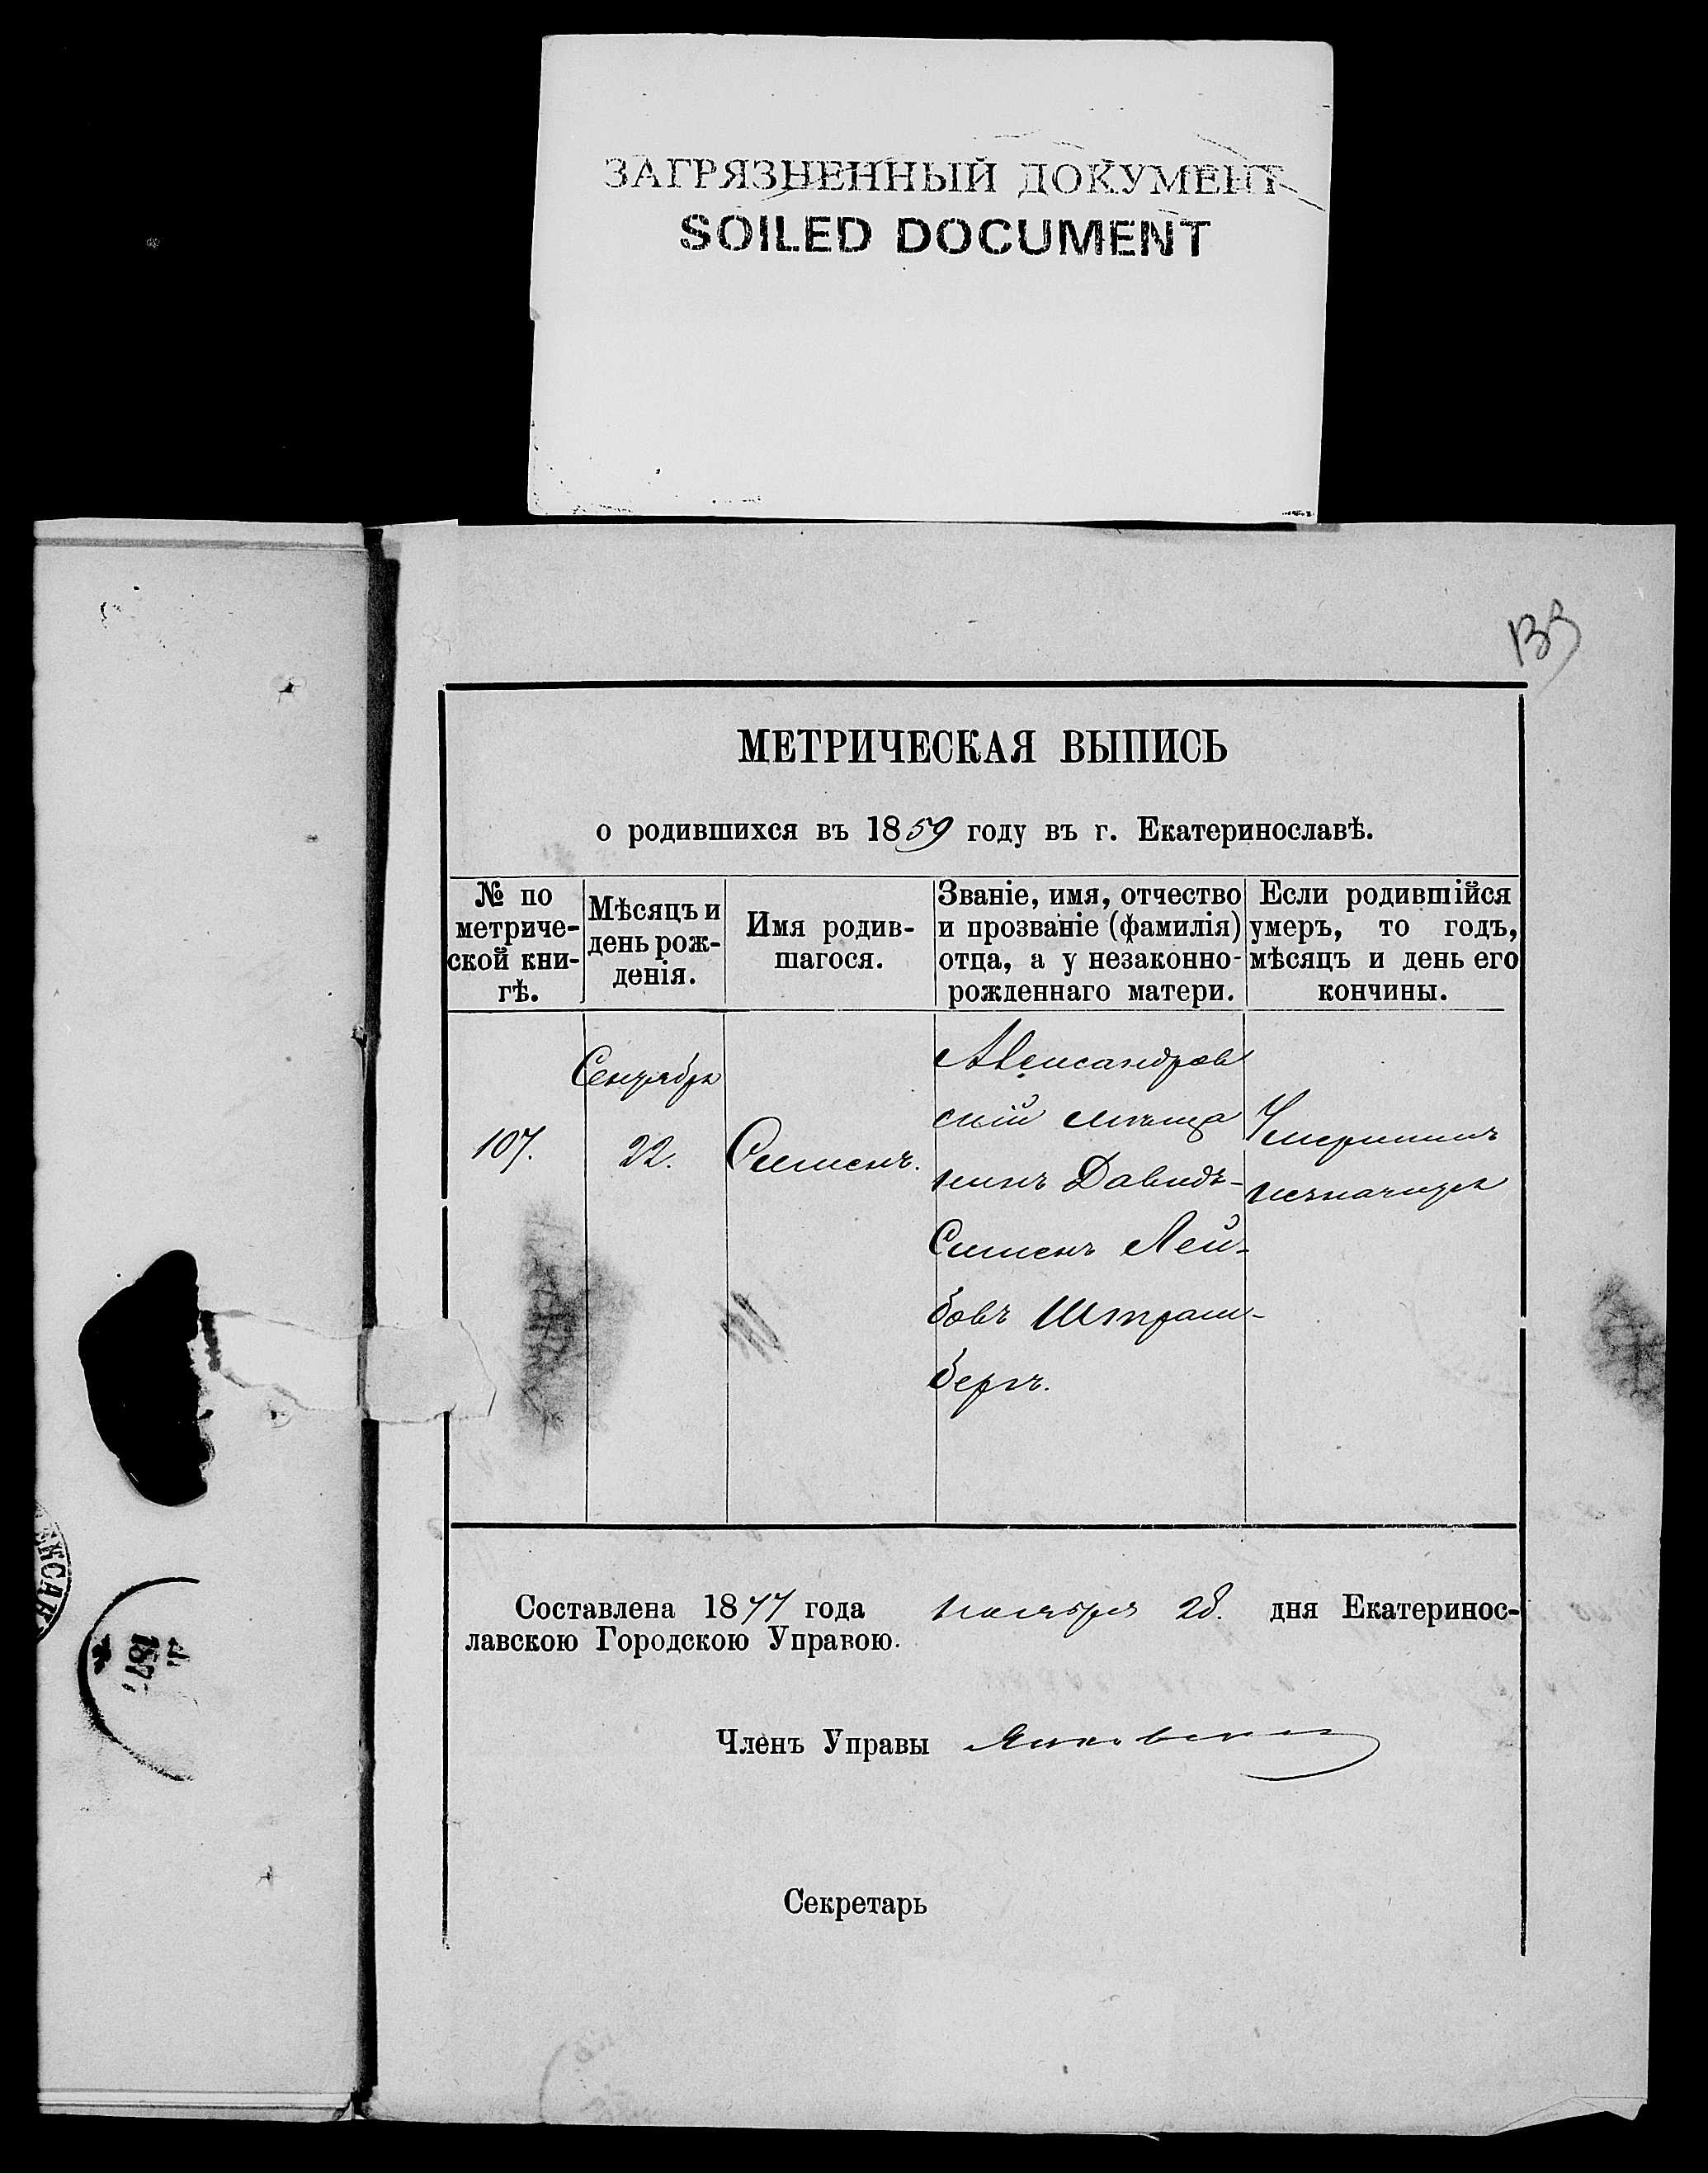 ЗАГРЯЗНЕННЫЙ ДОКУМЕНТ
SOILED DOCUMENT
133
МЕТРИЧЕСКАЯ ВЫПИСЬ
о родившихся въ 1859 году въ г. Екатеринославѣ.
№ по метриче-
ской кни-
гѣ.
Мѣсяцъ и
день рож-
денія.
Имя родив-
шагося.
Званіе, имя, отчество
и прозваніе (фамилія)
отца, а у незаконно-
рожденнаго матери.
Если родившійся
умеръ, то годъ,
мѣсяцъ и день его
кончины.
107.
Сентября
22.
Симонъ.
Александров
скій мѣща
нинъ Давидъ-
Симонъ Лей-
бовъ Штраш-
бергъ.
Умершимъ
незначится
Составлена 1877 года ноября 28. дня Екатеринос-
лавскою Городскою Управою.
Членъ Управы
Секретарь
187